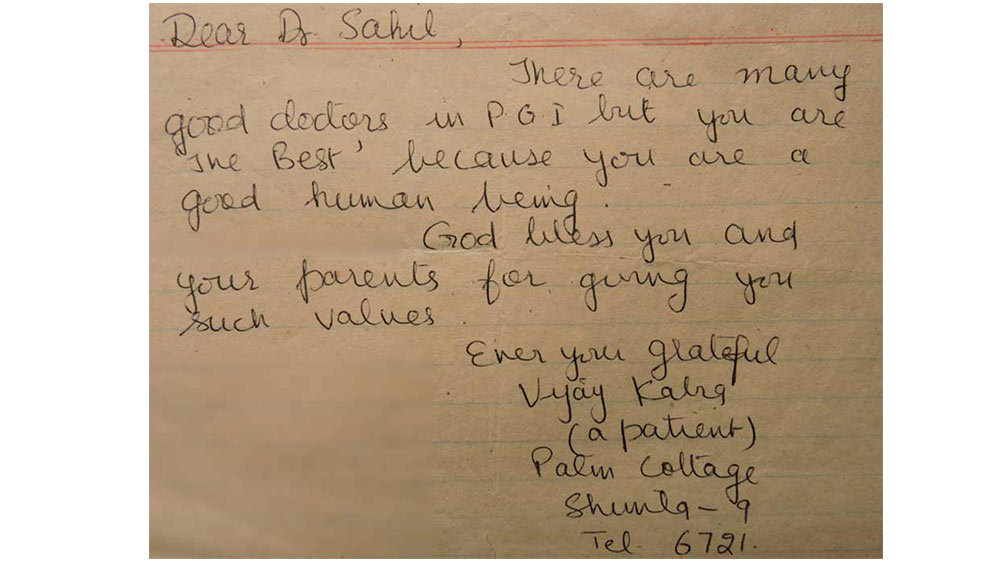 Dear Dr. Sahil,
There are many
good doctors in P G I but you are
The Best' because you are a
good human being.
God bless you and
your parents for giving you
such values.
Ever you grateful
Vijay Kalra
(a patient)
Palm Cottage
Shimla - 9
Tel. 6721.